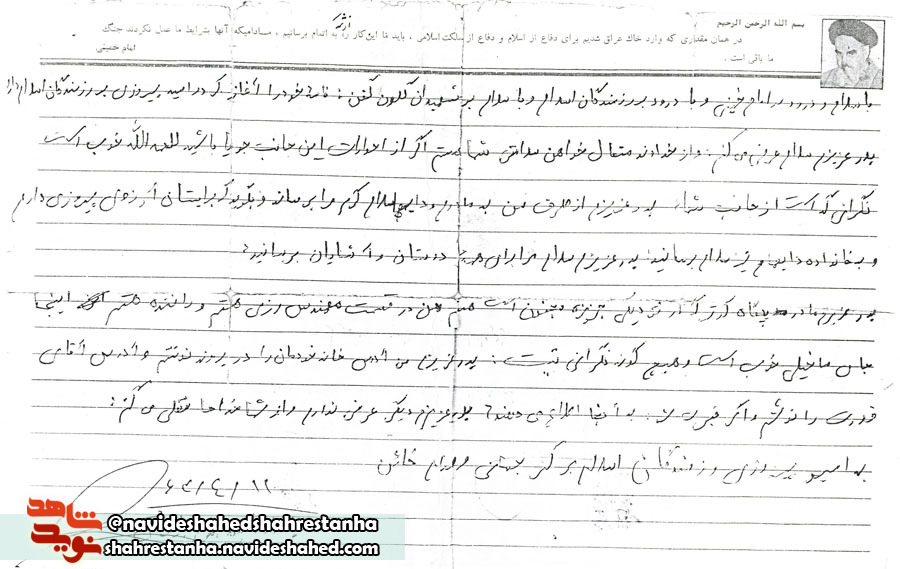 بسم الله الرحمن الرحیم
در همان مقداری که وارد خاک عراق شدیم برای دفاع از اسلام و دفاع از مملکت اسلامی ، باید ما این کار را به اتمام برسانیم ، مادامیکه آنها بشرایط ما عمل نکردند جنگ
ما باقی است .
امام خمینی
با سلام و درود بر امام خمینی و با درود بر رزمندگان اسلام و با سلام بر شهیدان گلگون کفن : نامه خود را آغاز در امید پیروزی بر رزمندگان اسلام
پدر عزیزم سلام عرض می کنم : و از خداوند متعال خواهان سلامتی شما هستم اگر از احوالات این جانب جویا باشید الحمدالله خوب است
نگرانی که است از جانب شما پدر عزیزم از طرف من به مادرم و سلام گرم مرا برساند و بگوید که برایتان آرزوی پیروزی دارم
و به خانواده نیز سلام برسانید : پدر عزیزم سلام مرا برای دوستان و آشنایان برسانید :
پدر عزیزم ما در نزدیکی جزیره مجنون است هستم من در قسمت مهندس رزمی هستم و راننده هستم اینجا
جای ما خیلی خوب است و هیچ گونه نگرانی نیست : پدر عزیزم من آدرس خانه خودمان را در نوشتم و آدرس آقای
قدرت را نوشتم و اگر به آنجا اطلاع می دهند پدر عزیزم دیگر عرضی ندارم و از شما خداحافظی می کنم :
به امید پیروزی رزمندگان اسلام بر کفر جهانی صدام خائن
۶۳/۴/۱۲
شاهد
نوید
@navideshahedshahrestanha
shahrestanha.navideshahed.com